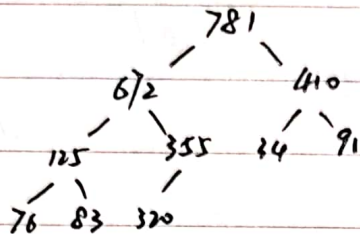 781
672 410
125 355 34 91
76 83 320